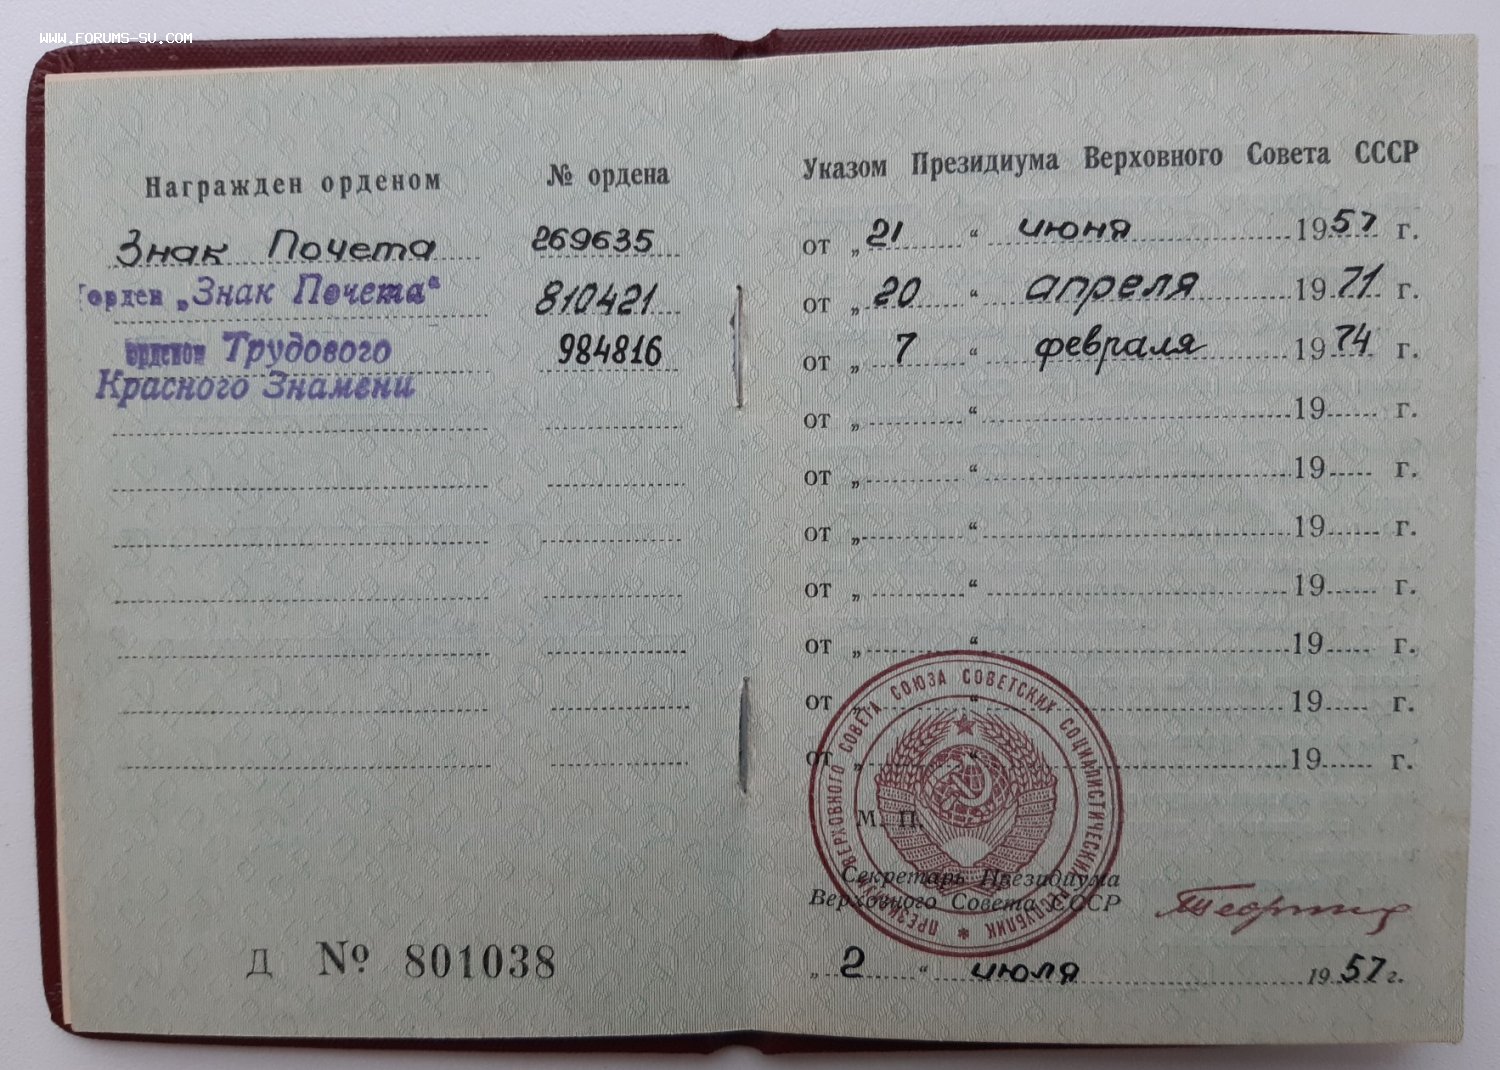 WWW.FORUMS-SU.COM
Награжден орденом
№ ордена
Знак Почета 269635
орден „Знак Почета“ 810421
орденом Трудового 984816
Красного Знамени
Д № 801038
Указом Президиума Верховного Совета СССР
от „ 21 “ июня 1957 г.
от „ 20 “ апреля 1971 г.
от „ 7 “ февраля 1974 г.
от „ “ 19 г.
от „ “ 19 г.
от „ “ 19 г.
от „ “ 19 г.
от „ “ 19 г.
от „ “ 19 г.
от „ “ 19 г.
ПРЕЗИДИУМ ВЕРХОВНОГО СОВЕТА СОЮЗА СОВЕТСКИХ СОЦИАЛИСТИЧЕСКИХ РЕСПУБЛИК
М. П.
Секретарь Президиума
Верховного Совета СССР
„ 2 “ июля 1957 г.